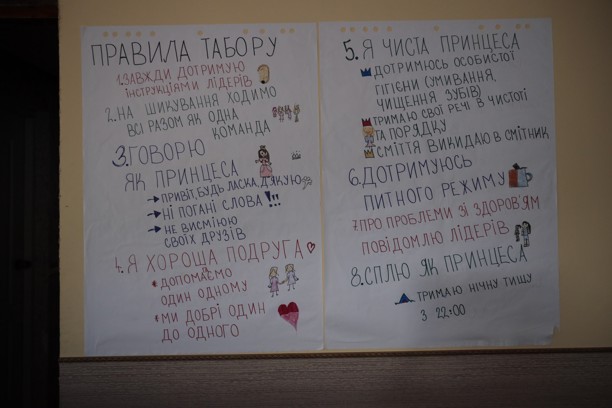 ПРАВИЛА ТАБОРУ
1.ЗАВЖДИ ДОТРИМУЮ
ІНСТРУКЦІЯМИ ЛІДЕРІВ
2.НА ШИКУВАННЯ ХОДИМО
ВСІ РАЗОМ ЯК ОДНА
КОМАНДА
3.ГОВОРЮ
ЯК ПРИНЦЕСА
→ПРИВІТ,БУДЬ ЛАСКА,ДЯКУЮ
→НІ ПОГАНІ СЛОВА!!
→НЕ ВИСМІЮЮ
СВОЇХ ДРУЗІВ
4.Я ХОРОША ПОДРУГА
ДОПОМАЄМО
ОДИН ОДНОМУ
МИ ДОБРІ ОДИН
ДО ОДНОГО
5.Я ЧИСТА ПРИНЦЕСА
ДОТРИМЮСЬ ОСОБИСТОЇ
ГІГІЄНИ (УМИВАННЯ,
ЧИЩЕННЯ ЗУБІВ)
ТРИМАЮ СВОЇ РЕЧІ В ЧИСТОТІ
ТА ПОРЯДКУ
СМІТТЯ ВИКИДАЮ В СМІТНИК
6.ДОТРИМУЮСЬ
ПИТНОГО РЕЖИМУ
7.ПРО ПРОБЛЕМИ ЗІ ЗДОРОВ'ЯМ
ПОВІДОМЛЮ ЛІДЕРІВ
8.СПЛЮ ЯК ПРИНЦЕСА
ТРИМАЮ НІЧНУ ТИШУ
З 22:00